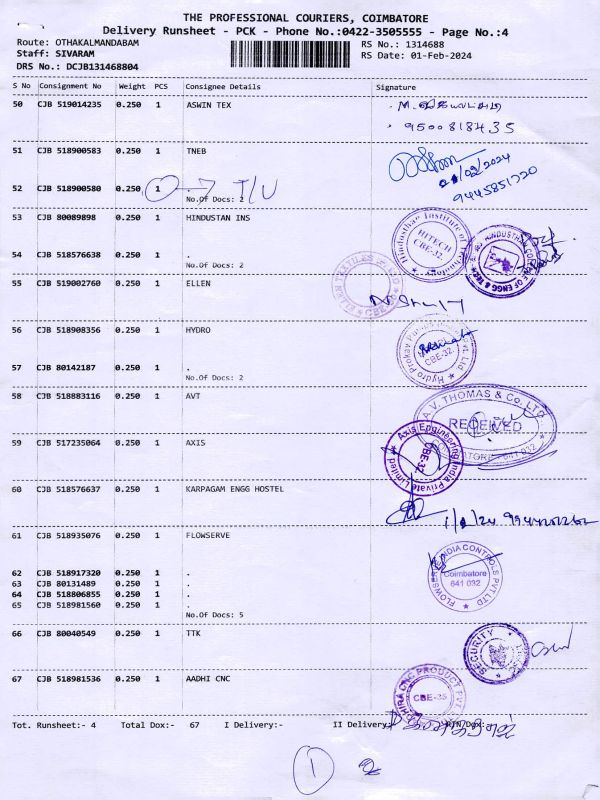 THE PROFESSIONAL COURIERS, COIMBATORE
Delivery Runsheet - PCK - Phone No.:0422-3505555 - Page No.:4
Route: OTHAKALMANDABAM
Staff: SIVARAM
DRS No.: DCJB131468804
RS No.: 1314688
RS Date: 01-Feb-2024
S No Consignment No Weight PCS Consignee Details Signature
50 CJB 519014235 0.250 1 ASWIN TEX
9500818435
51 CJB 518900583 0.250 1 TNEB
01/02/2024
9445851720
52 CJB 518900580 0.250 1 → T/U
No.Of Docs: 2
53 CJB 80089898 0.250 1 HINDUSTAN INS
Hindusthan Institute of Technology
HITECH
CBE-32.
54 CJB 518576638 0.250 1 .
No.Of Docs: 2
55 CJB 519002760 0.250 1 ELLEN
56 CJB 518908356 0.250 1 HYDRO
CBE-32.
57 CJB 80142187 0.250 1 .
No.Of Docs: 2
58 CJB 518883116 0.250 1 AVT
A.V. THOMAS & Co. LTD
RECEIVED
COIMBATORE - 641 032
59 CJB 517235064 0.250 1 AXIS
Axis Engineering India Private Limited
CBE-32
60 CJB 518576637 0.250 1 KARPAGAM ENGG HOSTEL
61 CJB 518935076 0.250 1 FLOWSERVE
FLOWSERVE INDIA CONTROLS PVT LTD
Coimbatore
641 032
62 CJB 518917320 0.250 1 .
63 CJB 80131489 0.250 1 .
64 CJB 518806855 0.250 1 .
65 CJB 518981560 0.250 1 .
No.Of Docs: 5
66 CJB 80040549 0.250 1 TTK
SECURITY
67 CJB 518981536 0.250 1 AADHI CNC
CBE-35
Tot. Runsheet:- 4 Total Dox:- 67 I Delivery:- II Delivery:- RTN Dox:-
1 2